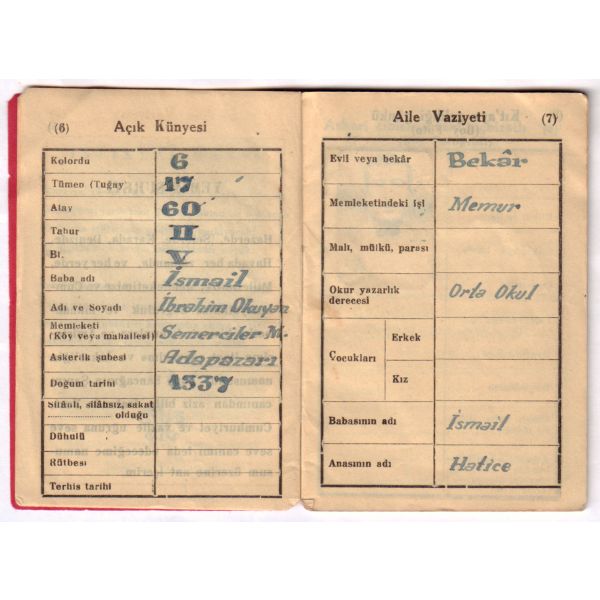 (6) Açık Künyesi
Kolordu 6
Tümen (Tugay 17
Alay 60
Tabur II
Bl. V
Baba adı İsmail
Adı ve Soyadı İbrahim Okuyan
Memleketi
(Köy veya mahallesi) Semerciler M.
Askerlik şubesi Adapazarı
Doğum tarihi 1337
Silâhlı, silâhsız, sakat
olduğu
Dühulü
Rütbesi
Terhis tarihi
Aile Vaziyeti (7)
Evli veya bekâr Bekâr
Memleketindeki işi Memur
Malı, mülkü, parası
Okur yazarlık
derecesi Orta Okul
Çocukları
Erkek
Kız
Babasının adı İsmail
Anasının adı Hatice